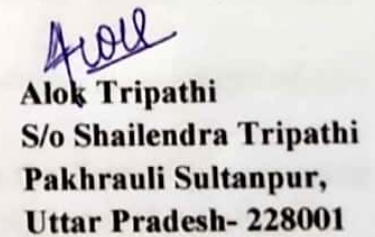 Alok
Alok Tripathi
S/o Shailendra Tripathi
Pakhrauli Sultanpur,
Uttar Pradesh- 228001